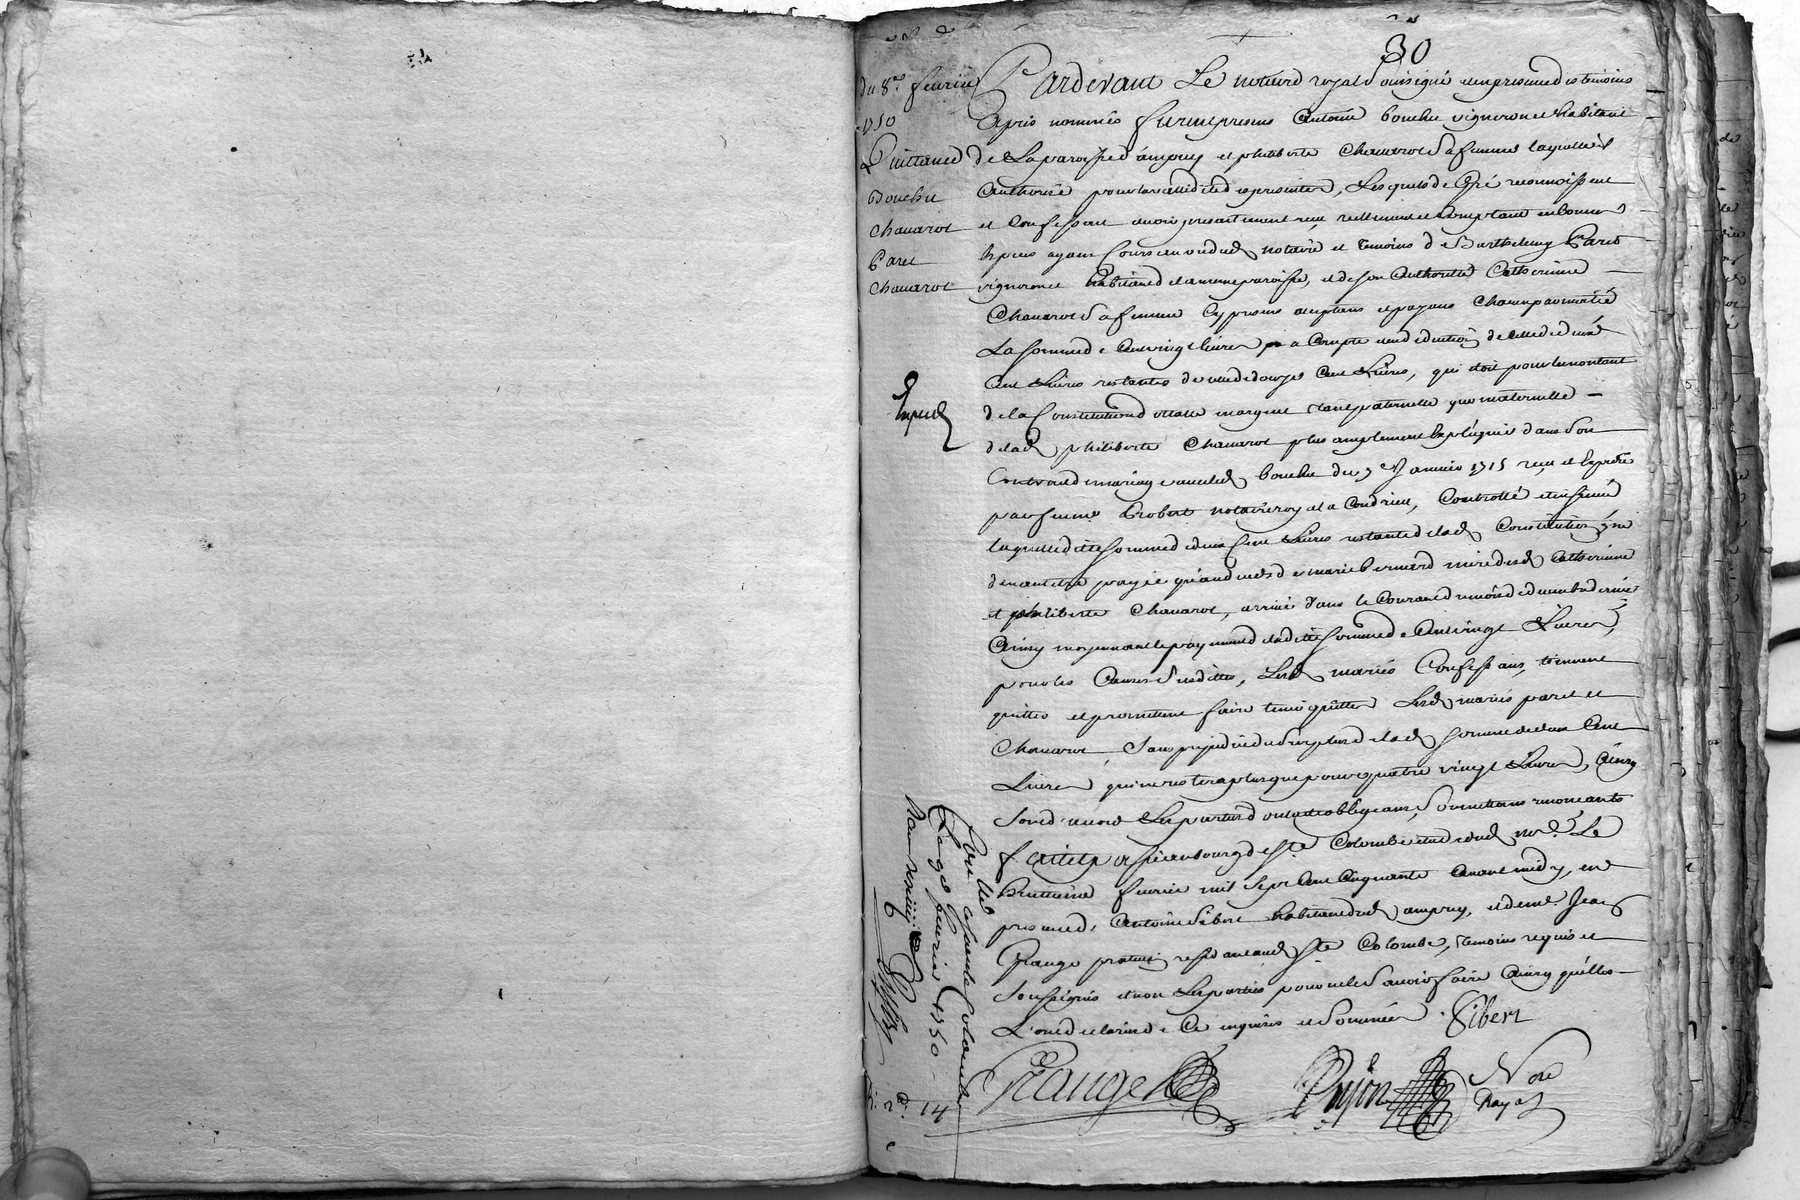 30
du 8e. feurier
1750
Quittance
Bouchu
Chauarot
Paret
Chauarot
Expedié
Pardevant Le notaire royal soussigné et en presence des temoins
apres nommés furent presens Antoine bouchu vigneron et habitant
de La paroisse d'ampuy et philiberte Chauarot sa femme laquelle il
authorise pour la validité des presentes, Lesquels de Gré reconnoissent
et Confessent auoir presentement reçu reellement et Comptant en bonnes
Especes ayant Cours au vu dud notaire et temoins de Barthelemy Paret
vigneron et habitant de la meme paroisse, et de son authorité Catherinne
Chauarot sa femme Cy presens acceptans et payans Chacun par moitié
La somme de Cent vingt liures a Compte et en deduction de celle de deux
Cent Liures restantes de celle de douze Cent Liures, qui etoit pour le montant
de la Constitution dottalle en argent tant paternelle que maternelle
de lad philiberte Chauarot plus amplement Expliquée dans son
Contrat de mariage auec led bouchu du 7e Januier 1715 reçu et Expedié
par feu me Probert notaire royal a Condrieu, Controllé et insinué
laquelle ditte somme de deux Cent Liures restante de lad Constitution ne
deuant etre payée qu'au deces de marie bernard mere desd Catherinne
et philiberte Chauarot, arriué dans le Courant du mois de decembre dernier
Ainsy moyennant le payement de laditte somme de Cent vingt Liures,
pour les Causes susdittes, Lesd mariés Confessans, tiennent
quittes et promettent faire tenir quittes Lesd mariés paret et
Chauarot, sans prejudice du surplus de lad somme de deux Cent
Liures qui ne restera plus que pour quatre vingt Liures, Ainsy
sont d'accord Les parties obligeans, soumettans renonceants
fait et passé au bourg de Ste Colombe etude dud nore. Le
huittieme feurier mil sept Cent Cinquante auant midy, en
presence d'Antoine sibert habitant dud ampuy, et de me Jean
Grange praticien residant aud Ste Colombe, temoins requis et
soussignés et non Les parties pour ne le sauoir faire Ainsy qu'elles
L'ont declaré de Ce enquises et sommées. Sibert
Grange
Dujon
Nore
Royal
Controllé a Sainte Colombe
Le 9e feurier 1750
14